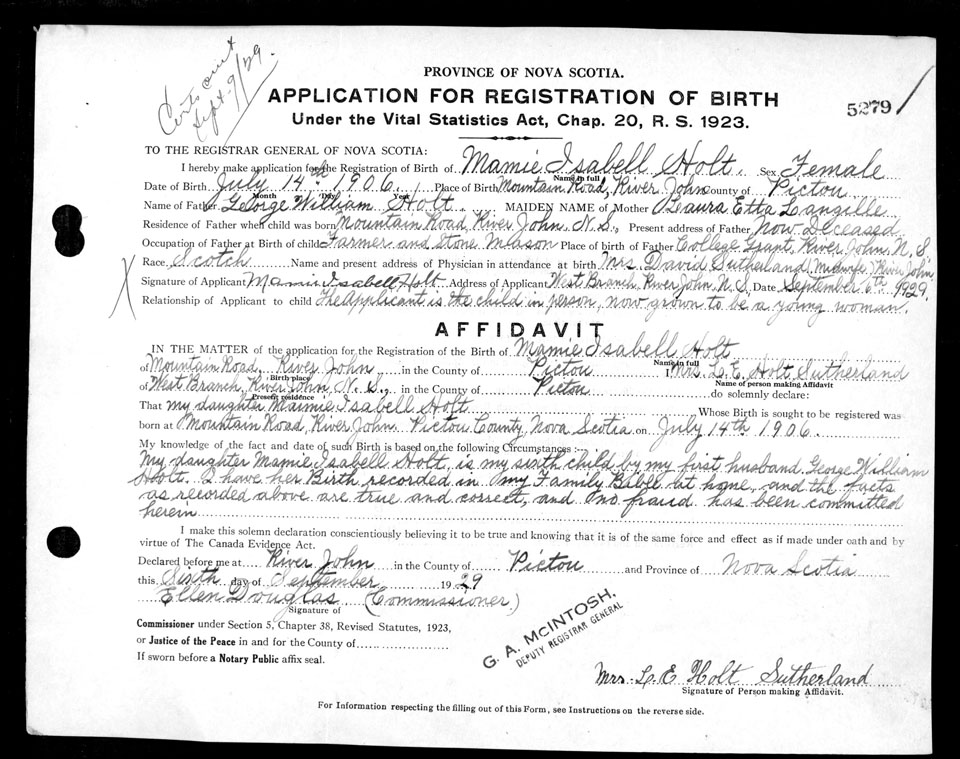 Certs out
Sept. 9/29.
PROVINCE OF NOVA SCOTIA.
APPLICATION FOR REGISTRATION OF BIRTH
5279
Under the Vital Statistics Act, Chap. 20, R. S. 1923.
TO THE REGISTRAR GENERAL OF NOVA SCOTIA:
I hereby make application for the Registration of Birth of Mamie Isabell Holt. Sex Female
Name in full
Date of Birth July 14th 1906. Place of Birth Mountain Road, River John County of Pictou
Month Day Year
Name of Father George William Holt. MAIDEN NAME of Mother Laura Etta Langille
Residence of Father when child was born Mountain Road, River John, N. S., Present address of Father, now Deceased
Occupation of Father at Birth of child Farmer and Stone Mason Place of birth of Father College Grant, River John, N. S.
Race, Scotch Name and present address of Physician in attendance at birth Mrs. David Sutherland (Midwife) River John,
Signature of Applicant Mamie Isabell Holt Address of Applicant West Branch, River John, N. S, Date September 6th 1929.
Relationship of Applicant to child The Applicant is the child in person, now grown to be a young woman.
AFFIDAVIT
IN THE MATTER of the application for the Registration of the Birth of Mamie Isabell Holt
Name in full
of Mountain Road, River John in the County of Pictou I, Mrs. L. E. Holt Sutherland
Birth place Name of person making Affidavit
of West Branch, River John, N. S., in the County of Pictou do solemnly declare:
Present residence
That my daughter Mamie Isabell Holt Whose Birth is sought to be registered was
born at Mountain Road, River John Pictou County, Nova Scotia on July 14th 1906.
My knowledge of the fact and date of such Birth is based on the following Circumstances:
My daughter Mamie Isabell Holt, is my sixth child by my first husband, George William
Holt. I have her Birth recorded in my Family Bible at home, and the facts
as recorded above are true and correct, and no fraud has been committed
herein
I make this solemn declaration conscientiously believing it to be true and knowing that it is of the same force and effect as if made under oath and by
virtue of The Canada Evidence Act.
Declared before me at River John in the County of Pictou and Province of Nova Scotia
this Sixth day of September 1929
Ellen Douglas (Commissioner)
Signature of
Commissioner under Section 5, Chapter 38, Revised Statutes, 1923,
or Justice of the Peace in and for the County of
If sworn before a Notary Public affix seal.
G. A. McINTOSH,
DEPUTY REGISTRAR GENERAL
Mrs. L. E Holt Sutherland
Signature of Person making Affidavit.
For Information respecting the filling out of this Form, see Instructions on the reverse side.